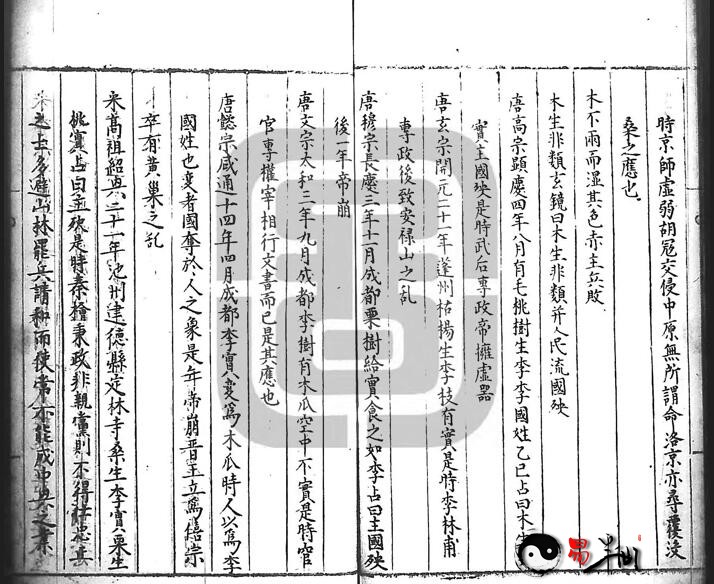 時京師虛弱胡冦交侵中原無所謂命洛京亦尋覆没
桑之應也
木不雨而湿其色赤主兵敗
木生非類玄鏡曰木生非類并人民流國殃
唐高宗顯慶四年八月有毛桃樹生李李國姓乙巳占曰木生
實主國殃是時武后專政帝擁虛器
唐玄宗開元二十一年蓬州枯楊生李枝有實是時李林甫
專政後致安禄山之乱
唐穆宗長慶三年十二月成都栗樹結實食之如李占曰主國殃
後一年帝崩
唐文宗太和三年九月成都李樹有木瓜空中不實是時宦
官專權宰相行文書而已是其應也
唐懿宗咸通十四年四月成都李實變爲木瓜時人以爲李
國姓也变者國奪於人之象是年帝崩晋王立爲僖宗
卒有黄巢之乱
宋髙祖紹興二十一年池州建德縣定林寺桑生李實栗生
桃實占曰主殃是時秦檜秉政非親黨則不得仕忠
之士多避山林罷兵講和而使常不能成中興之業
易